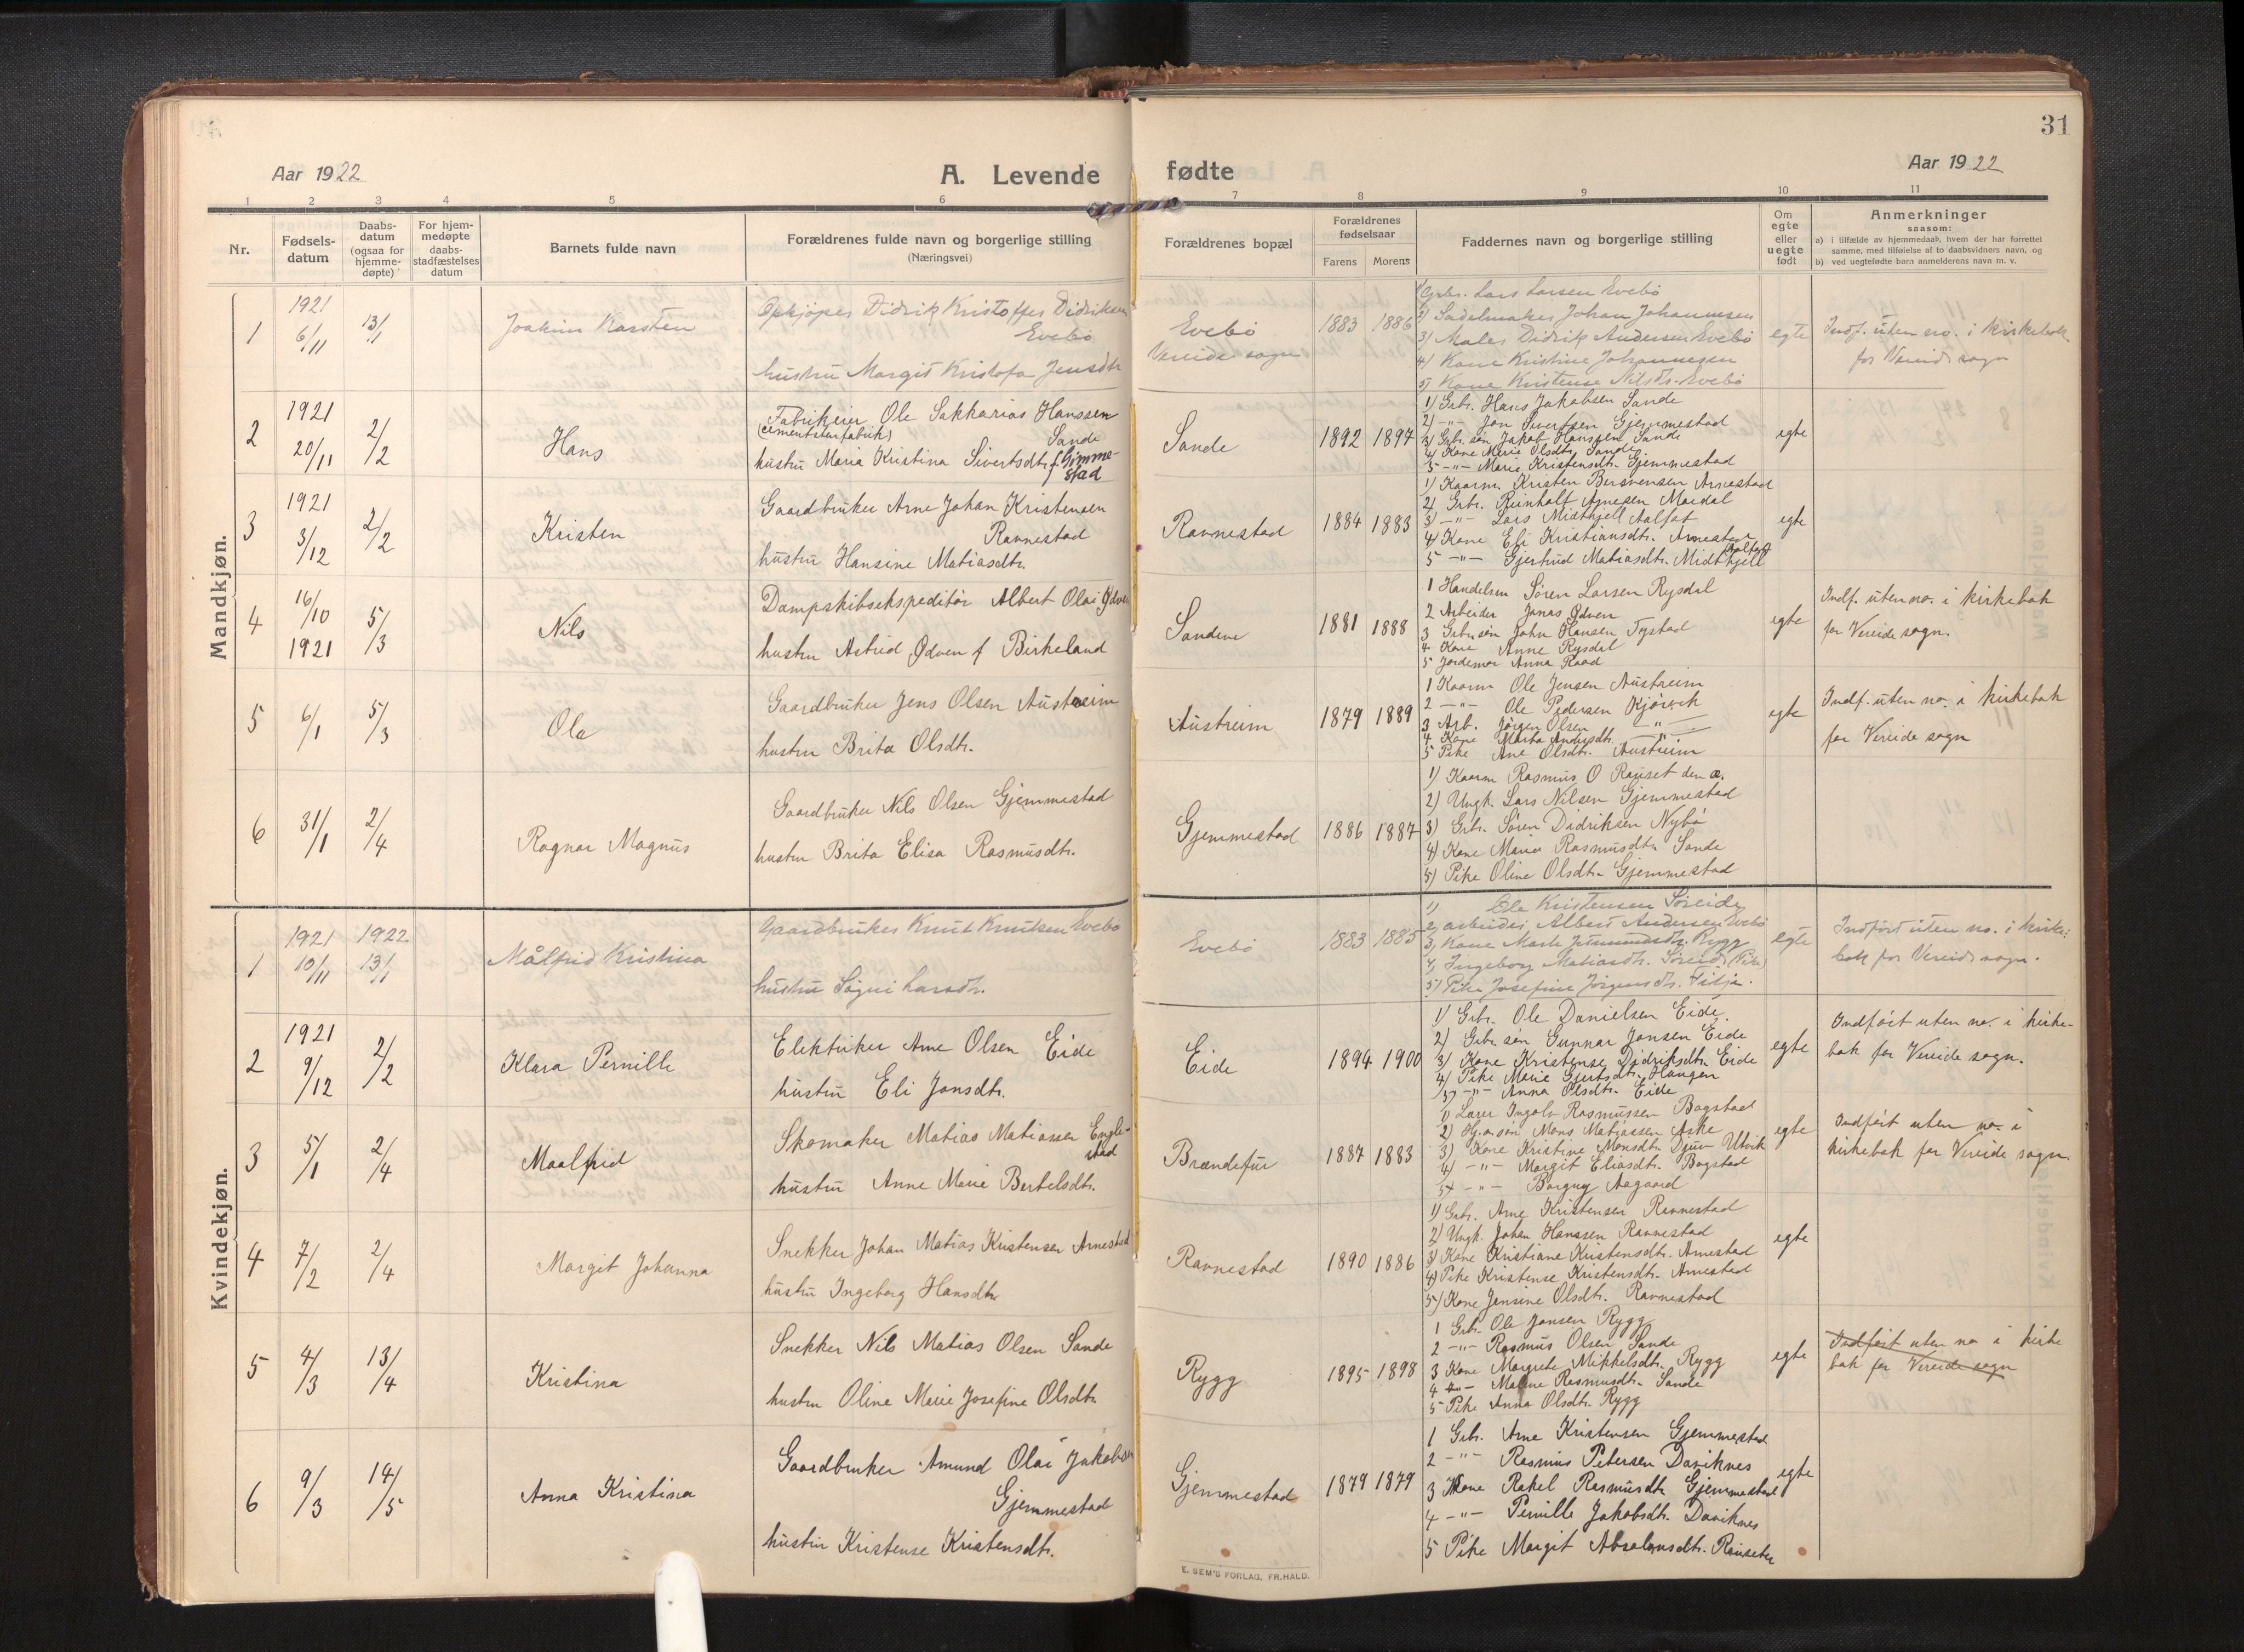 31
Aar 1922
A. Levende
fødte
Aar 1922
1 2 3 4 5 6 7 8 9 10 11
Nr.
Fødsels-
datum
Daabs-
datum
(ogsaa for
hjemme-
døpte)
For hjem-
medøpte
daabs-
stadfæstelses
datum
Barnets fulde navn
Forældrenes fulde navn og borgerlige stilling
(Næringsvei)
Forældrenes bopæl
Forældrenes
fødselsaar
Farens Morens
Faddernes navn og borgerlige stilling
Om
egte
eller
uegte
født
Anmerkninger
saasom:
a) i tilfælde av hjemmedaab, hvem der har forrettet
samme, med tilføielse af to daabsvidners navn, og
b) ved uegtefødte barn anmelderens navn m. v.
Mandkjøn.
1
1921
6/11
13/1
Joakim Karsten
Opkjøper Didrik Kristoffer Didriksen
Evebø
hustru Margit Kristofa Jensdtr
Evebø
Vereide sogn
1883 1886
1) Grbr. Lars Larsen Evebø
2) Sadelmaker Johan Johannesen
3) Maler Didrik Andersen Evebø
4) Kone Kristine Johannesen
5) Kone Kristense Nilsdtr. Evebø
egte
Indf. uten no. i kirkebok
for Vereide sogn
2
1921
20/11
2/2
Hans
Fabrikeier Ole Sakkarias Hanssen
(cementstenfabrik)
Sande
hustru Maria Kristina Sivertsdtr. f. Gimme-
stad
Sande
1892 1897
1) Grbr. Hans Jakobsen Sande
2) -"- Jon Sivertsen Gjemmestad
3) Grbr. søn Jakob Hanssen Sande
4) Kone Marie Olsdtr. Sande
5 -"- Marie Kristensdtr. Gjemmestad
egte
3
1921
3/12
2/2
Kristen
Gaardbruker Arne Johan Kristensen
Ravnestad
hustru Hansine Matiasdtr.
Ravnestad
1884 1883
1) Kaarm. Kristen Bersvensen Arnestad
2) Grbr. Reinholf Arnesen Mardal
3) -"- Lars Midthjell Aalfot
4) Kone Eli Kristiansdtr. Arnestad
5 -"- Gjertrud Matiasdtr. Midthjell
Aalfot
egte
4
16/10
1921
5/3
Nils
Dampskibsekspeditør Albert Olai Ødven
hustru Astrid Ødven f Birkeland
Sandene
1881 1888
1 Handelsm Søren Larsen Rysdal
2 Arbeider Jonas Ødven
3 Grbr. søn John Hansen Tystad
4 Kone Anne Rysdal
5 Jordemor Anna Raad
egte
Indf. uten no. i kirkebok
for Vereide sogn.
5
6/1
5/3
Ola
Gaardbruker Jens Olsen Austreim
hustru Brita Olsdtr.
Austreim
1879 1889
1 Kaarm Ole Jensen Austreim
2 -"- Ole Pedersen Kjørvik
3 Arb. Jørgen Olsen -"-
4 Kone Marta Andersdtr. -"-
5 Pike Ane Olsdtr. Austreim
egte
Indf. uten no. i kirkebok
for Vereide sogn
6
31/1
2/4
Ragnar Magnus
Gaardbruker Nils Olsen Gjemmestad
hustru Brita Elisa Rasmusdtr.
Gjemmestad
1886 1887
1) Kaarm Rasmus O Rauset den æ.
2) Ungk. Lars Nilsen Gjemmestad
3) Grbr. Søren Didriksen Nybø
4) Kone Maria Rasmusdtr Sande
5) Pike Oline Olsdtr. Gjemmestad
Kvindekjøn.
1
1921
10/11
1922
13/1
Målfrid Kristina
Gaardbruker Knut Knutsen Evebø
hustru Signi Larsdtr.
Evebø
1883 1885
1) Ole Kristensen Søreide
2) arbeider Albert Andersen Evebø
3) Kone Marte Rygg
4) Ingeborg Matiasdtr. Søreide (Pike)
5) Pike Josefine Jørgensdtr. Fitje.
egte
Indført uten no. i kirke-
bok for Vereide sogn.
2
1921
9/12
2/2
Klara Pernille
Elektriker Arne Olsen Eide
hustru Eli Jonsdtr.
Eide
1894 1900
1) Grbr. Ole Danielsen Eide.
2) Grbr søn Gunnar Jonsen Eide
3) Kone Kristense Didriksdtr. Eide
4) Pike Marie Gjertsdtr. Haugen
5) -"- Anna Olsdtr. Eide
egte
Indført uten no. i kirke-
bok for Vereide sogn.
3
5/1
2/4
Maalfrid
Skomaker Matias Matiassen Engle-
stad
hustru Anne Marie Bertelsdtr.
Brændefur
1887 1883
1) Lærer Ingolv Rasmussen Bogstad
2) søn Mons Matiassen Aske
3) Kone Kristine Monsdtr. Djuv Utvik
4) -"- Margit Eliasdtr. Bogstad
5) -"- Borgny Aagaard
egte
Indført uten no. i
kirkebok for Vereide sogn.
4
7/2
2/4
Margit Johanna
Snekker Johan Matias Kristensen Arnestad
hustru Ingeborg Hansdtr
Ravnestad
1890 1886
1) Grbr. Arne Kristensen Ravnestad
2) Ungk. Johan Hanssen Ravnestad
3) Kone Kristiane Kristensdtr. Arnestad
4) Pike Kristense Kristensdtr. Arnestad
5) Kone Jensine Olsdtr. Ravnestad
egte
5
4/3
13/4
Kristina
Snekker Nils Matias Olsen Sande
hustru Oline Marie Josefine Olsdtr.
Rygg
1895 1898
1 Grbr. Ole Jansen Rygg
2 -"- Rasmus Olsen Sande
3 Kone Margrete Mikkelsdtr. Rygg
4 -"- Malene Rasmusdtr. Sande
5 Pike Anna Olsdtr. Rygg
egte
Indført uten no i kirke
bok for Vereide sogn
6
9/3
14/5
Anna Kristina
Gaardbruker Amund Olai Jakobsen
Gjemmestad
hustru Kristense Kristensdtr.
Gjemmestad
1879 1879
1 Grbr. Arne Kristensen Gjemmestad
2 -"- Rasmus Petersen Daviknes
3 Kone Rakel Rasmusdtr Gjemmestad
4 -"- Pernille Jakobsdtr. Daviknes
5 Pike Margit Absalonsdtr. Rauseter
egte
E. SEM'S FORLAG, FR.HALD.